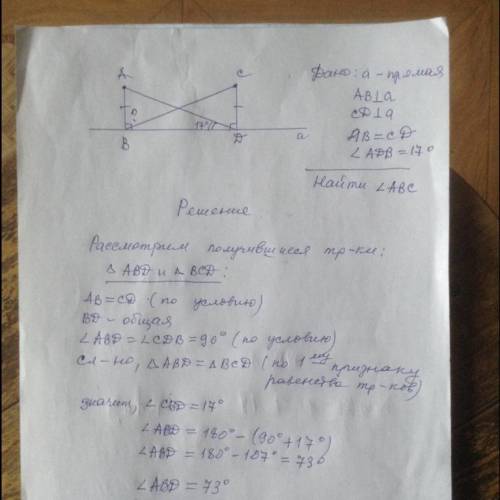 A
C
?
17°
B
D
a
Дано: a - прямая
AB⊥a
CD⊥a
AB=CD
∠ADB=17°
Найти ∠ABC
Решение
Рассмотрим получившиеся тр-ки:
△ABD и △BCD:
AB=CD (по условию)
BD - общая
∠ABD=∠CDB=90° (по условию)
Сл-но, △ABD=△BCD (по 1му признаку
равенства тр-ков)
значит, ∠CBD=17°
∠ABD=180°-(90°+17°)
∠ABD=180°-107°=73°
∠ABD=73°